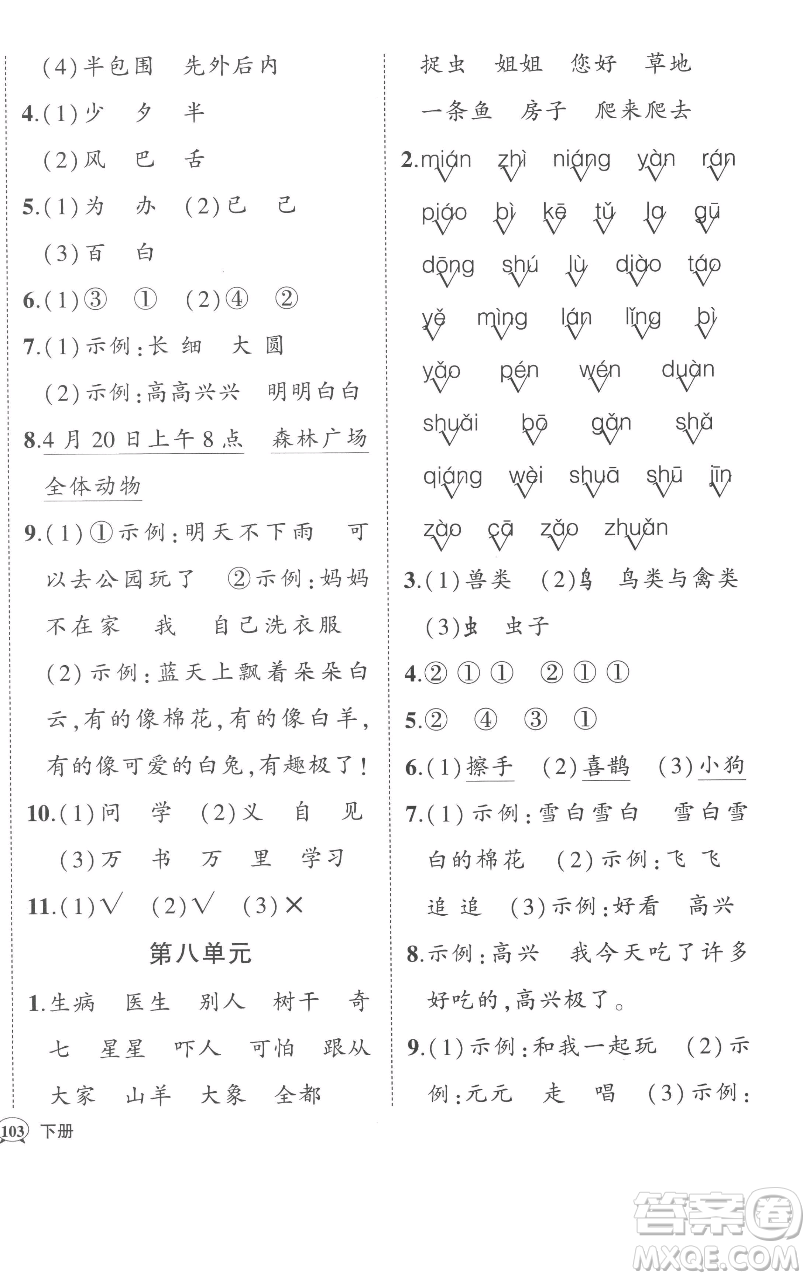 (4)半包围 先外后内
4.(1)少 夕 半
(2)风 巴 舌
5.(1)为 办 (2)已 己
(3)百 白
6.(1)③ ① (2)④ ②
7.(1)示例:长 细 大 圆
(2)示例:高高兴兴 明明白白
8.4月20日上午8点 森林广场
全体动物
9.(1)①示例:明天不下雨 可
以去公园玩了 ②示例:妈妈
不在家 我 自己洗衣服
(2)示例:蓝天上飘着朵朵白
云,有的像棉花,有的像白羊,
有的像可爱的白兔,有趣极了!
10.(1)问 学 (2)义 自 见
(3)万 书 万 里 学习
11.(1)√ (2)√ (3)×
第八单元
1.生病 医生 别人 树干 奇
七 星星 吓人 可怕 跟从
大家 山羊 大象 全都
103 下册
捉虫 姐姐 您好 草地
一条鱼 房子 爬来爬去
2.mián zhì niáng yàn rán
piáo bì kē tǔ la gū
dōng shú lù diào táo
yě mìng lán lǐng bì
yǎo pén wén duàn
shuǎi bō gǎn shǎ
qiáng wèi shuā shū jīn
zào cā zǎo zhuǎn
3.(1)兽类 (2)鸟 鸟类与禽类
(3)虫 虫子
4.②①① ②①①
5.② ④ ③ ①
6.(1)擦手 (2)喜鹊 (3)小狗
7.(1)示例:雪白雪白 雪白雪
白的棉花 (2)示例:飞 飞
追 追 (3)示例:好看 高兴
8.示例:高兴 我今天吃了许多
好吃的,高兴极了。
9.(1)示例:和我一起玩 (2)示
例:元元 走 唱 (3)示例:
答案卷
MXQE.COM